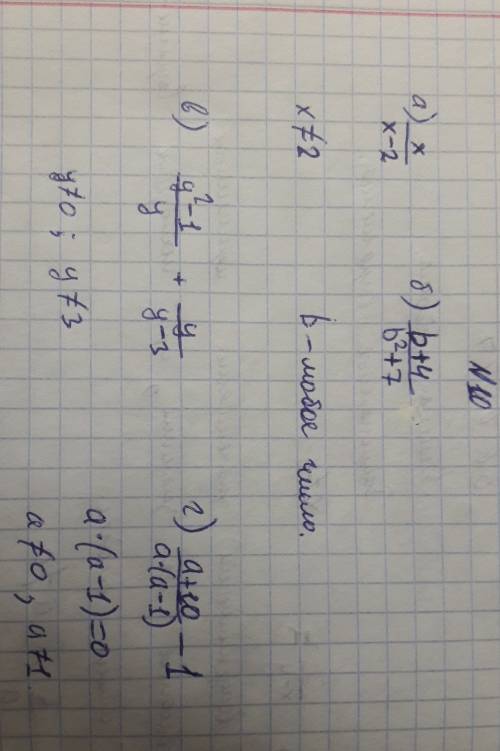 N10
а) x/(x-2)
б) (b+4)/(b²+7)
x≠2
b - любое число.
в) (y²-1)/y + y/(y-3)
y≠0; y≠3
г) (a+10)/(a·(a-1)) - 1
a·(a-1)=0
a≠0, a≠1